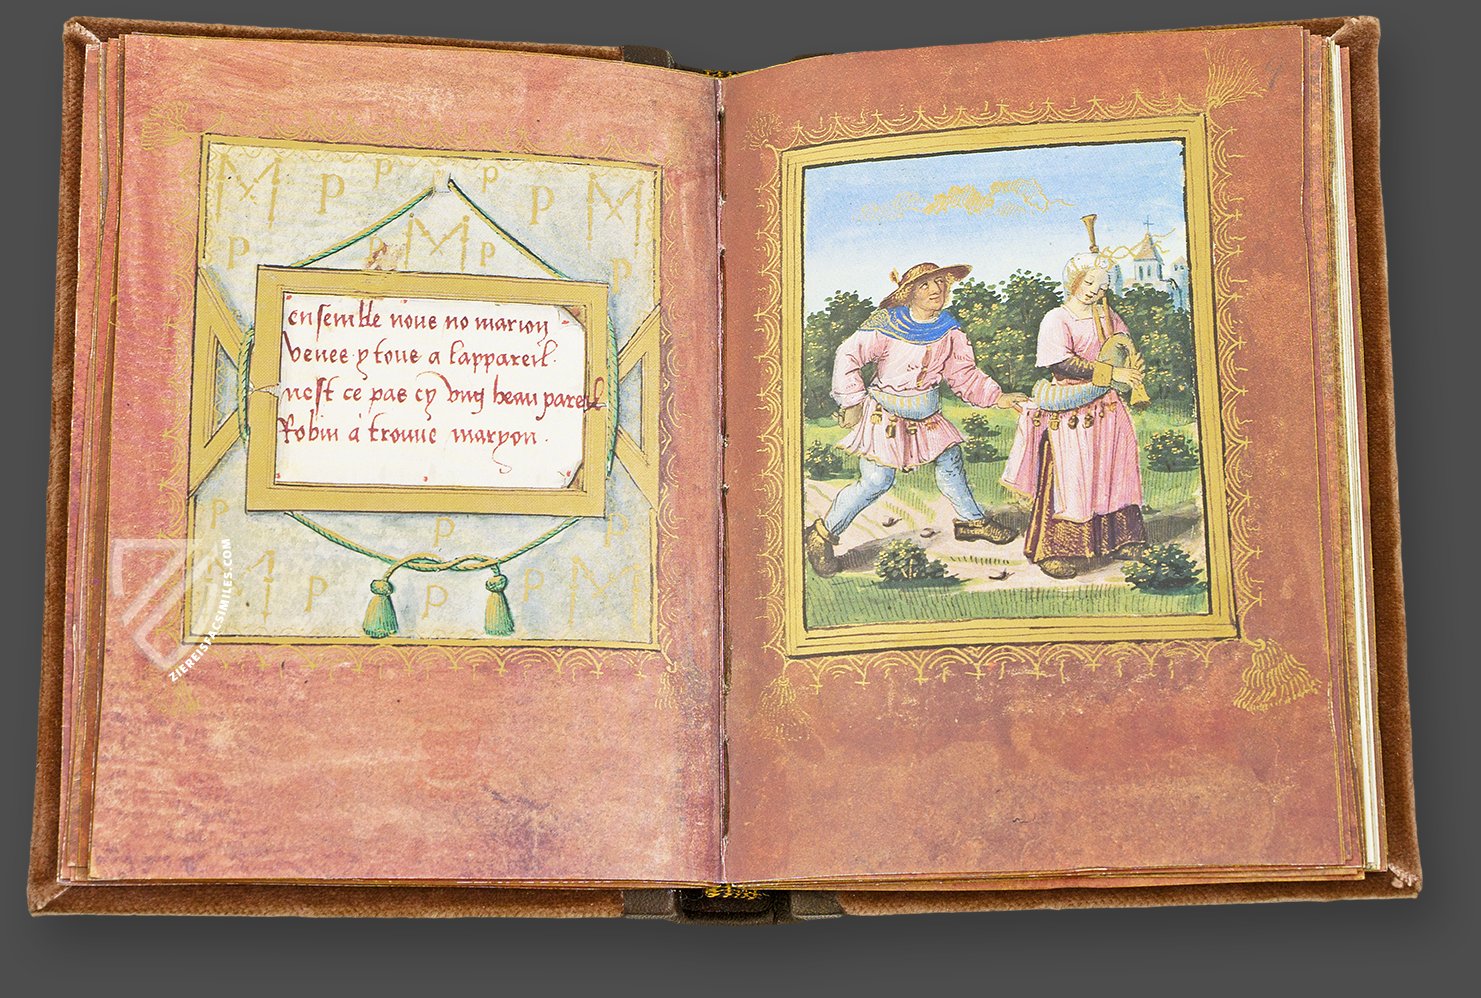 M P P P P M
P P M P P
ensemble nous no marion
venes y tous a lappareil.
nest ce pas cy vng beau pareil
Robin à trouue maryon.
P P P
M P P P M
ZIEREISFACSIMILES.COM